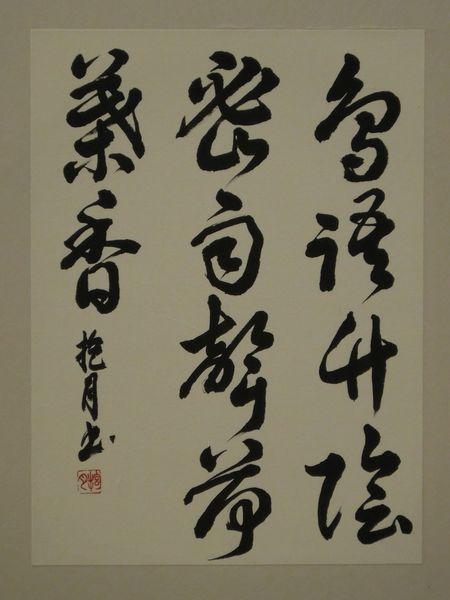 鳥語竹陰
密雨聲荷
葉香
抱月書